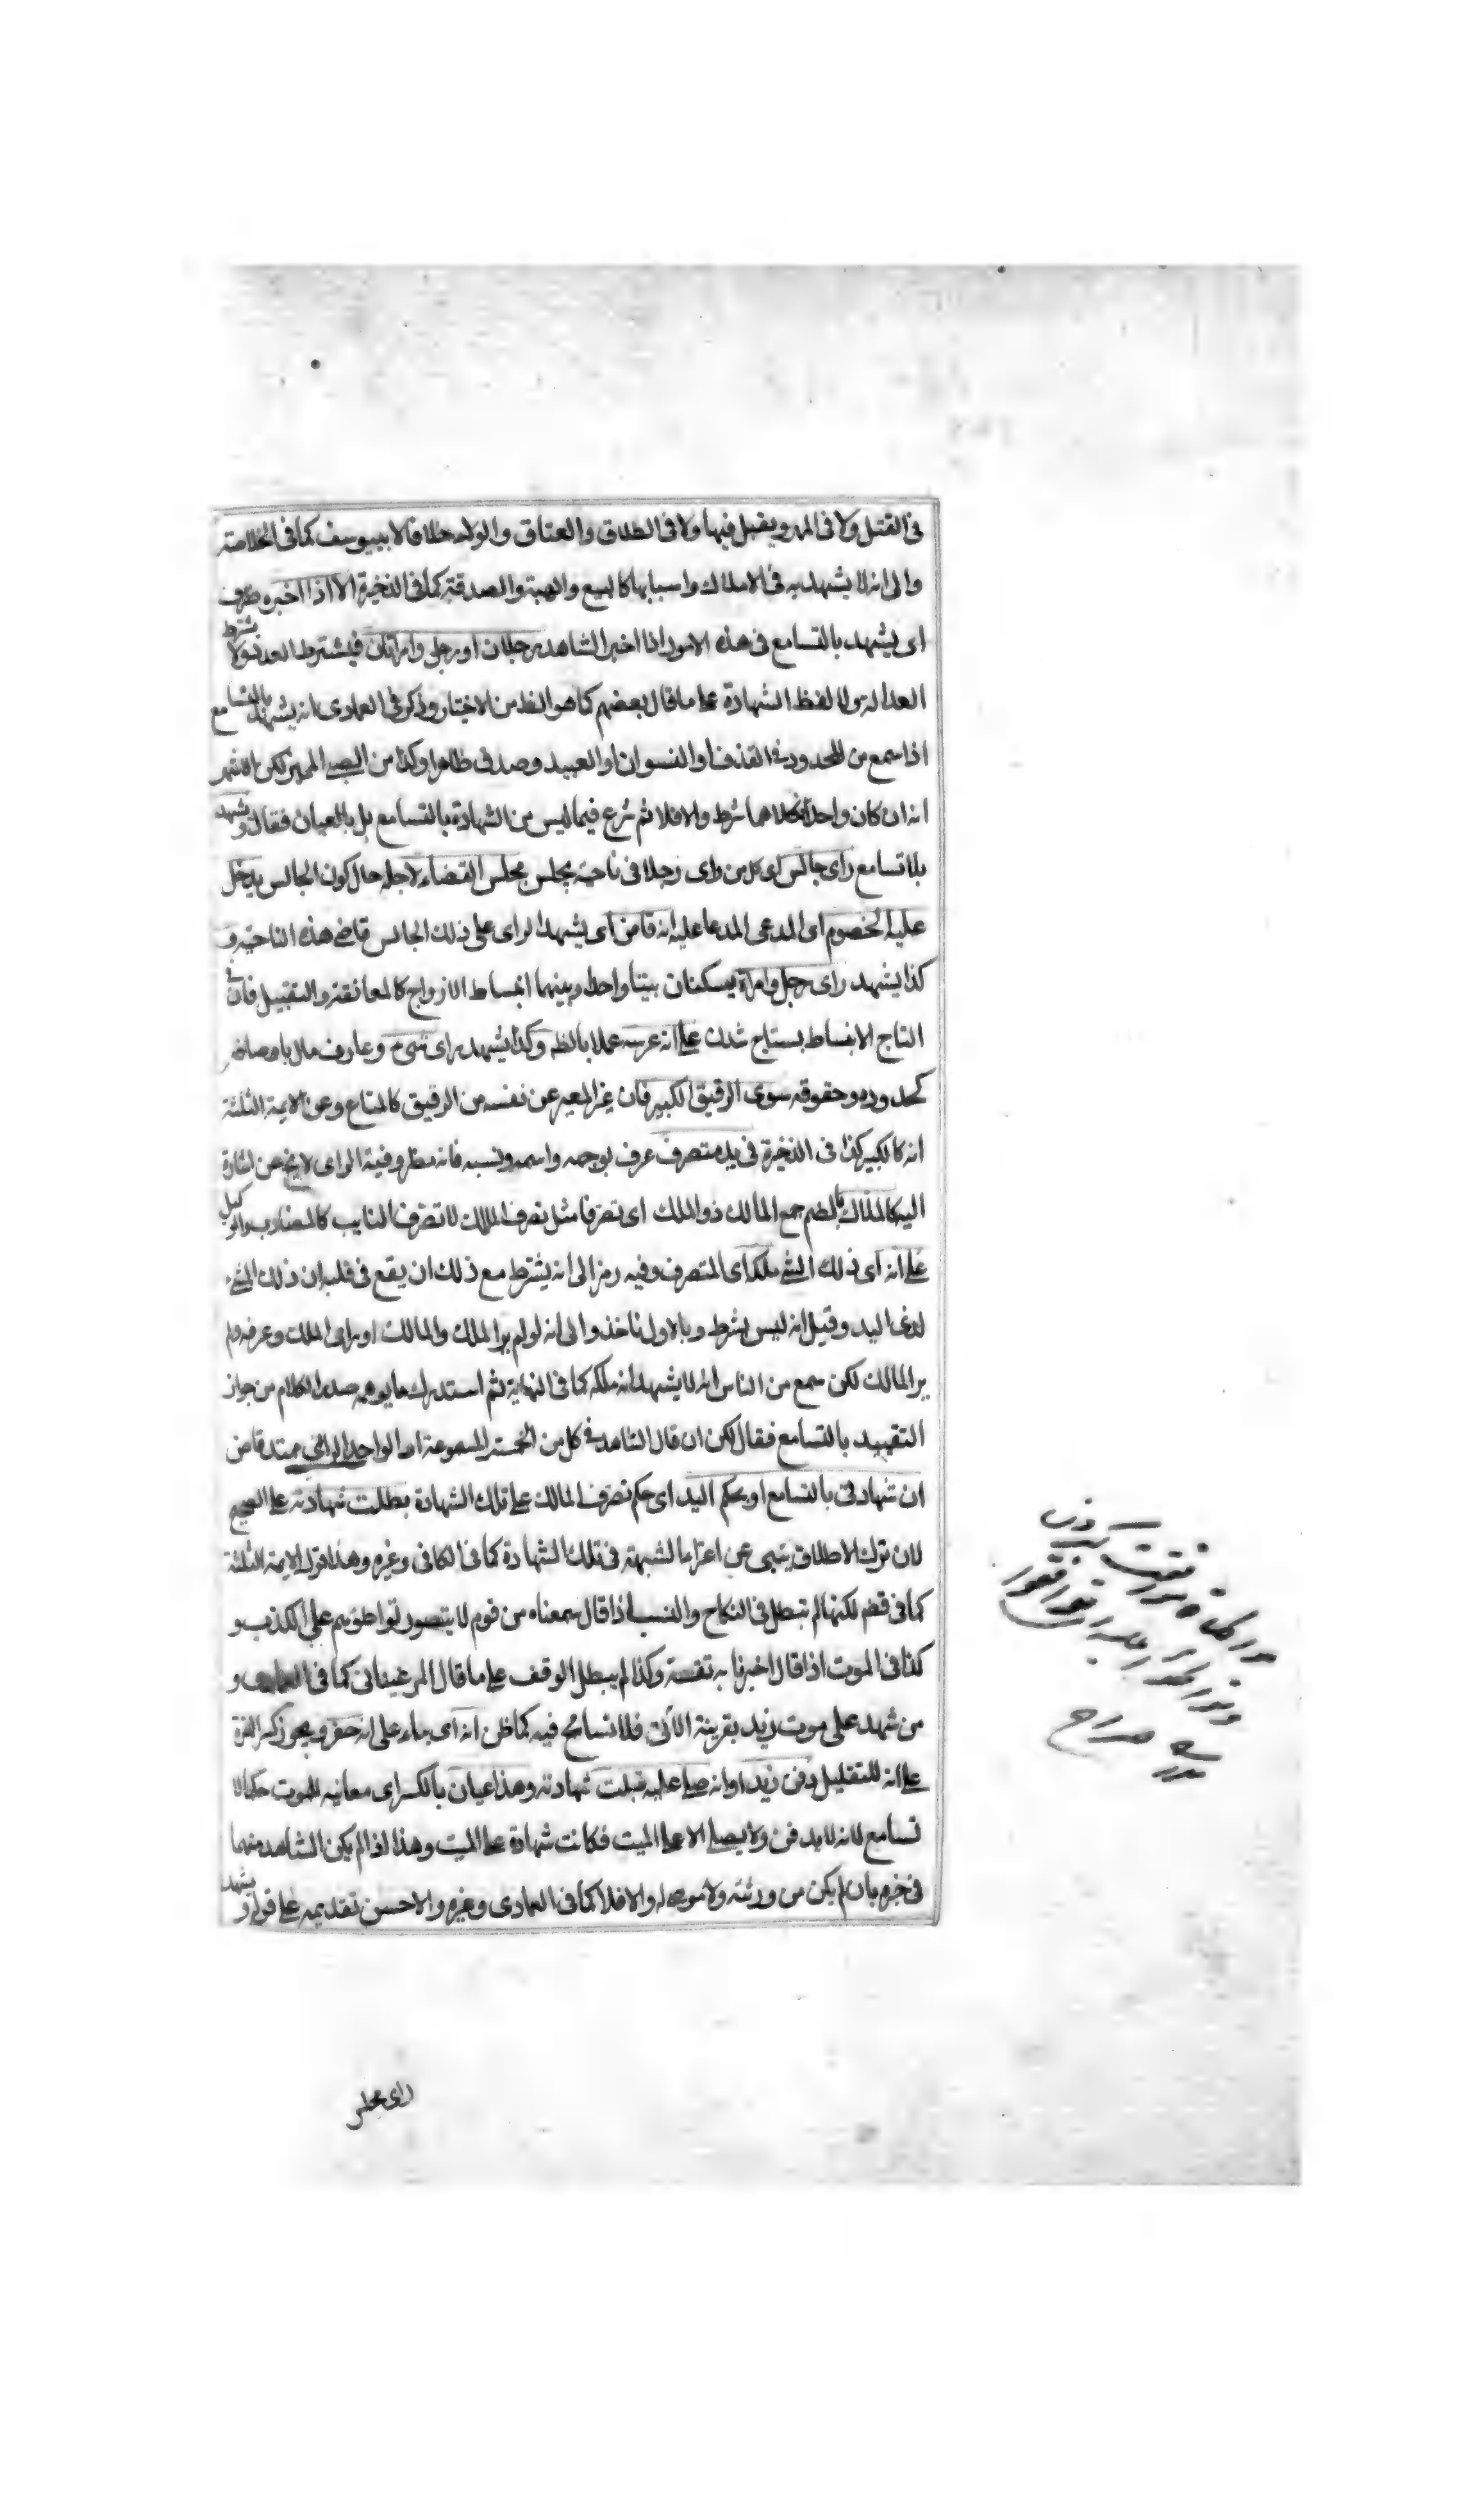 فى القتل ولا فى المهر ويقبل فيها ولا فى الطلاق والعتاق والولاء خلافا لابييوسف كما فى الخلاصة
والى انه لا يشهد به فى الاملاك واسبابها كالبيع والهبة والصدقة كما فى الذخيرة الا اذا اخبره
اى يشهد بالتسامع فى هذه الامور اذا اخبر الشاهد رجلان او رجل وامراتان فيشترط العدد ولا يشترط
العدالة ولا لفظ الشهادة على ما قال بعضهم كما هو الظ من الاختيار وذكر فى العمادى انه يشهد بالتسامع
اذا سمع من المحدود فى القذف او النسوان او العبيد وصدق ظاهرا وكذا من الصبى المميز لكن
انه ان كان واحدا فكلاهما شرط والا فلا ثم شرع فيما ليس من الشهادة بالتسامع بل بالعيان فقال ويشهد
بلا تسامع راى جالس اى كل من راى رجلا فى ناحية مجلس مجلس القضاء لاجله حال كون الجالس يدخل
عليه الخصوم اى المدعى المدعا عليه انه قاض اى يشهد الراى على ذلك الجالس قاضى هذه الناحية و
كذا يشهد راى رجل وامراة يسكنان بيتا واحدا وبينهما انبساط الازواج كالمعانقة والتقبيل فان فى
التاج الانبساط بستاج شدن على انه عرسه عملا بالظ وكذا يشهد راى شىء وعارف مال باوصافه
كحدوده وحقوقه سوى الرقيق الكبير فان غير المعبر عن نفسه من الرقيق كالمتاع وعن الايمة الثلثة
انه كالكبير كذا فى الذخيرة فى يد متصرف عرف بوجهه واسمه ونسبه فانه مظروفية الراى لا يخ عن اشارة
اليه كالملاك بالضم جمع المالك ذو الملك اى تصرفا مثل تصرف الملاك لا تصرف النايب كالمضارب والوكيل
على انه اى ذلك الشىء ملكه اى المتصرف وفيه رمز الى انه يشترط مع ذلك ان يقع فى قلبه ان ذلك الشىء
لذى اليد وقيل انه ليس بشرط وبالاول ناخذ والى انه لو لم ير الملك والمالك او راى الملك وعرفه ولم
ير المالك لكن سمع من الناس انه له لا يشهد انه ملكه كما فى النهاية ثم استدرك ما يوهمه صدر الكلام من جواز
التقييد بالتسامع فقال لكن ان قال الشاهد فى كل من الخمسة المسموعة او الواحد المرائى عند قاض
ان شهادتى بالتسامع او بحكم اليد اى حكم تصرف المالك على تلك الشهادة بطلت شهادته على الصحيح
لان ترك الاطلاق ينبى عن اعتراء الشبهة فى تلك الشهادة كما فى الكافى وغيره وهذا قول الايمة الثلثة
كما فى قضم لكنها لم تبطل فى النكاح والنسب اذا قال سمعناه من قوم لا يتصور تواطؤهم على الكذب و
كذا فى الموت اذا قال اخبرنا به ثقة وكذا لم يبطل الوقف على ما قال المرغينانى كما فى العمادى و
من شهد على موت زيد بقرينة الآتى فلا تسامح فيه كما ظن انه اى بناء على انه حضر ويجوز كسر الهمزة
على انه للتعليل دفن زيد او انه صلى عليه قبلت شهادته وهذا عيان بالكسر اى معاينة للموت حكما لا
تسامع لانه لا يدفن ولا يصلى الا على الميت فكانت شهادة على الميت وهذا اذا لم يكن الشاهد متهما
فى خبره بان لم يكن من ورثته ولا موصى له والا فلا كما فى العمادى وغيره والاحسن تقديمه على قوله ويشهد
راى مجلس